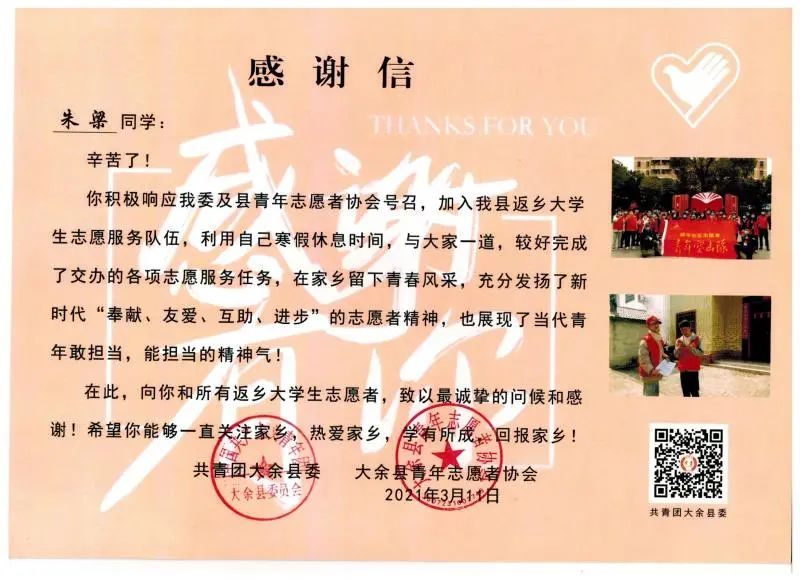 感谢信
THANKS FOR YOU
朱梁 同学：
辛苦了！
你积极响应我委及县青年志愿者协会号召，加入我县返乡大学
生志愿服务队伍，利用自己寒假休息时间，与大家一道，较好完成
了交办的各项志愿服务任务，在家乡留下青春风采，充分发扬了新
时代“奉献、友爱、互助、进步”的志愿者精神，也展现了当代青
年敢担当，能担当的精神气！
在此，向你和所有返乡大学生志愿者，致以最诚挚的问候和感
谢！希望你能够一直关注家乡、热爱家乡，学有所成，回报家乡！
共青团大余县委 大余县青年志愿者协会
2021年3月11日
大余县委员会
大余县青年志愿者协会
感谢有你
共青团大余县委